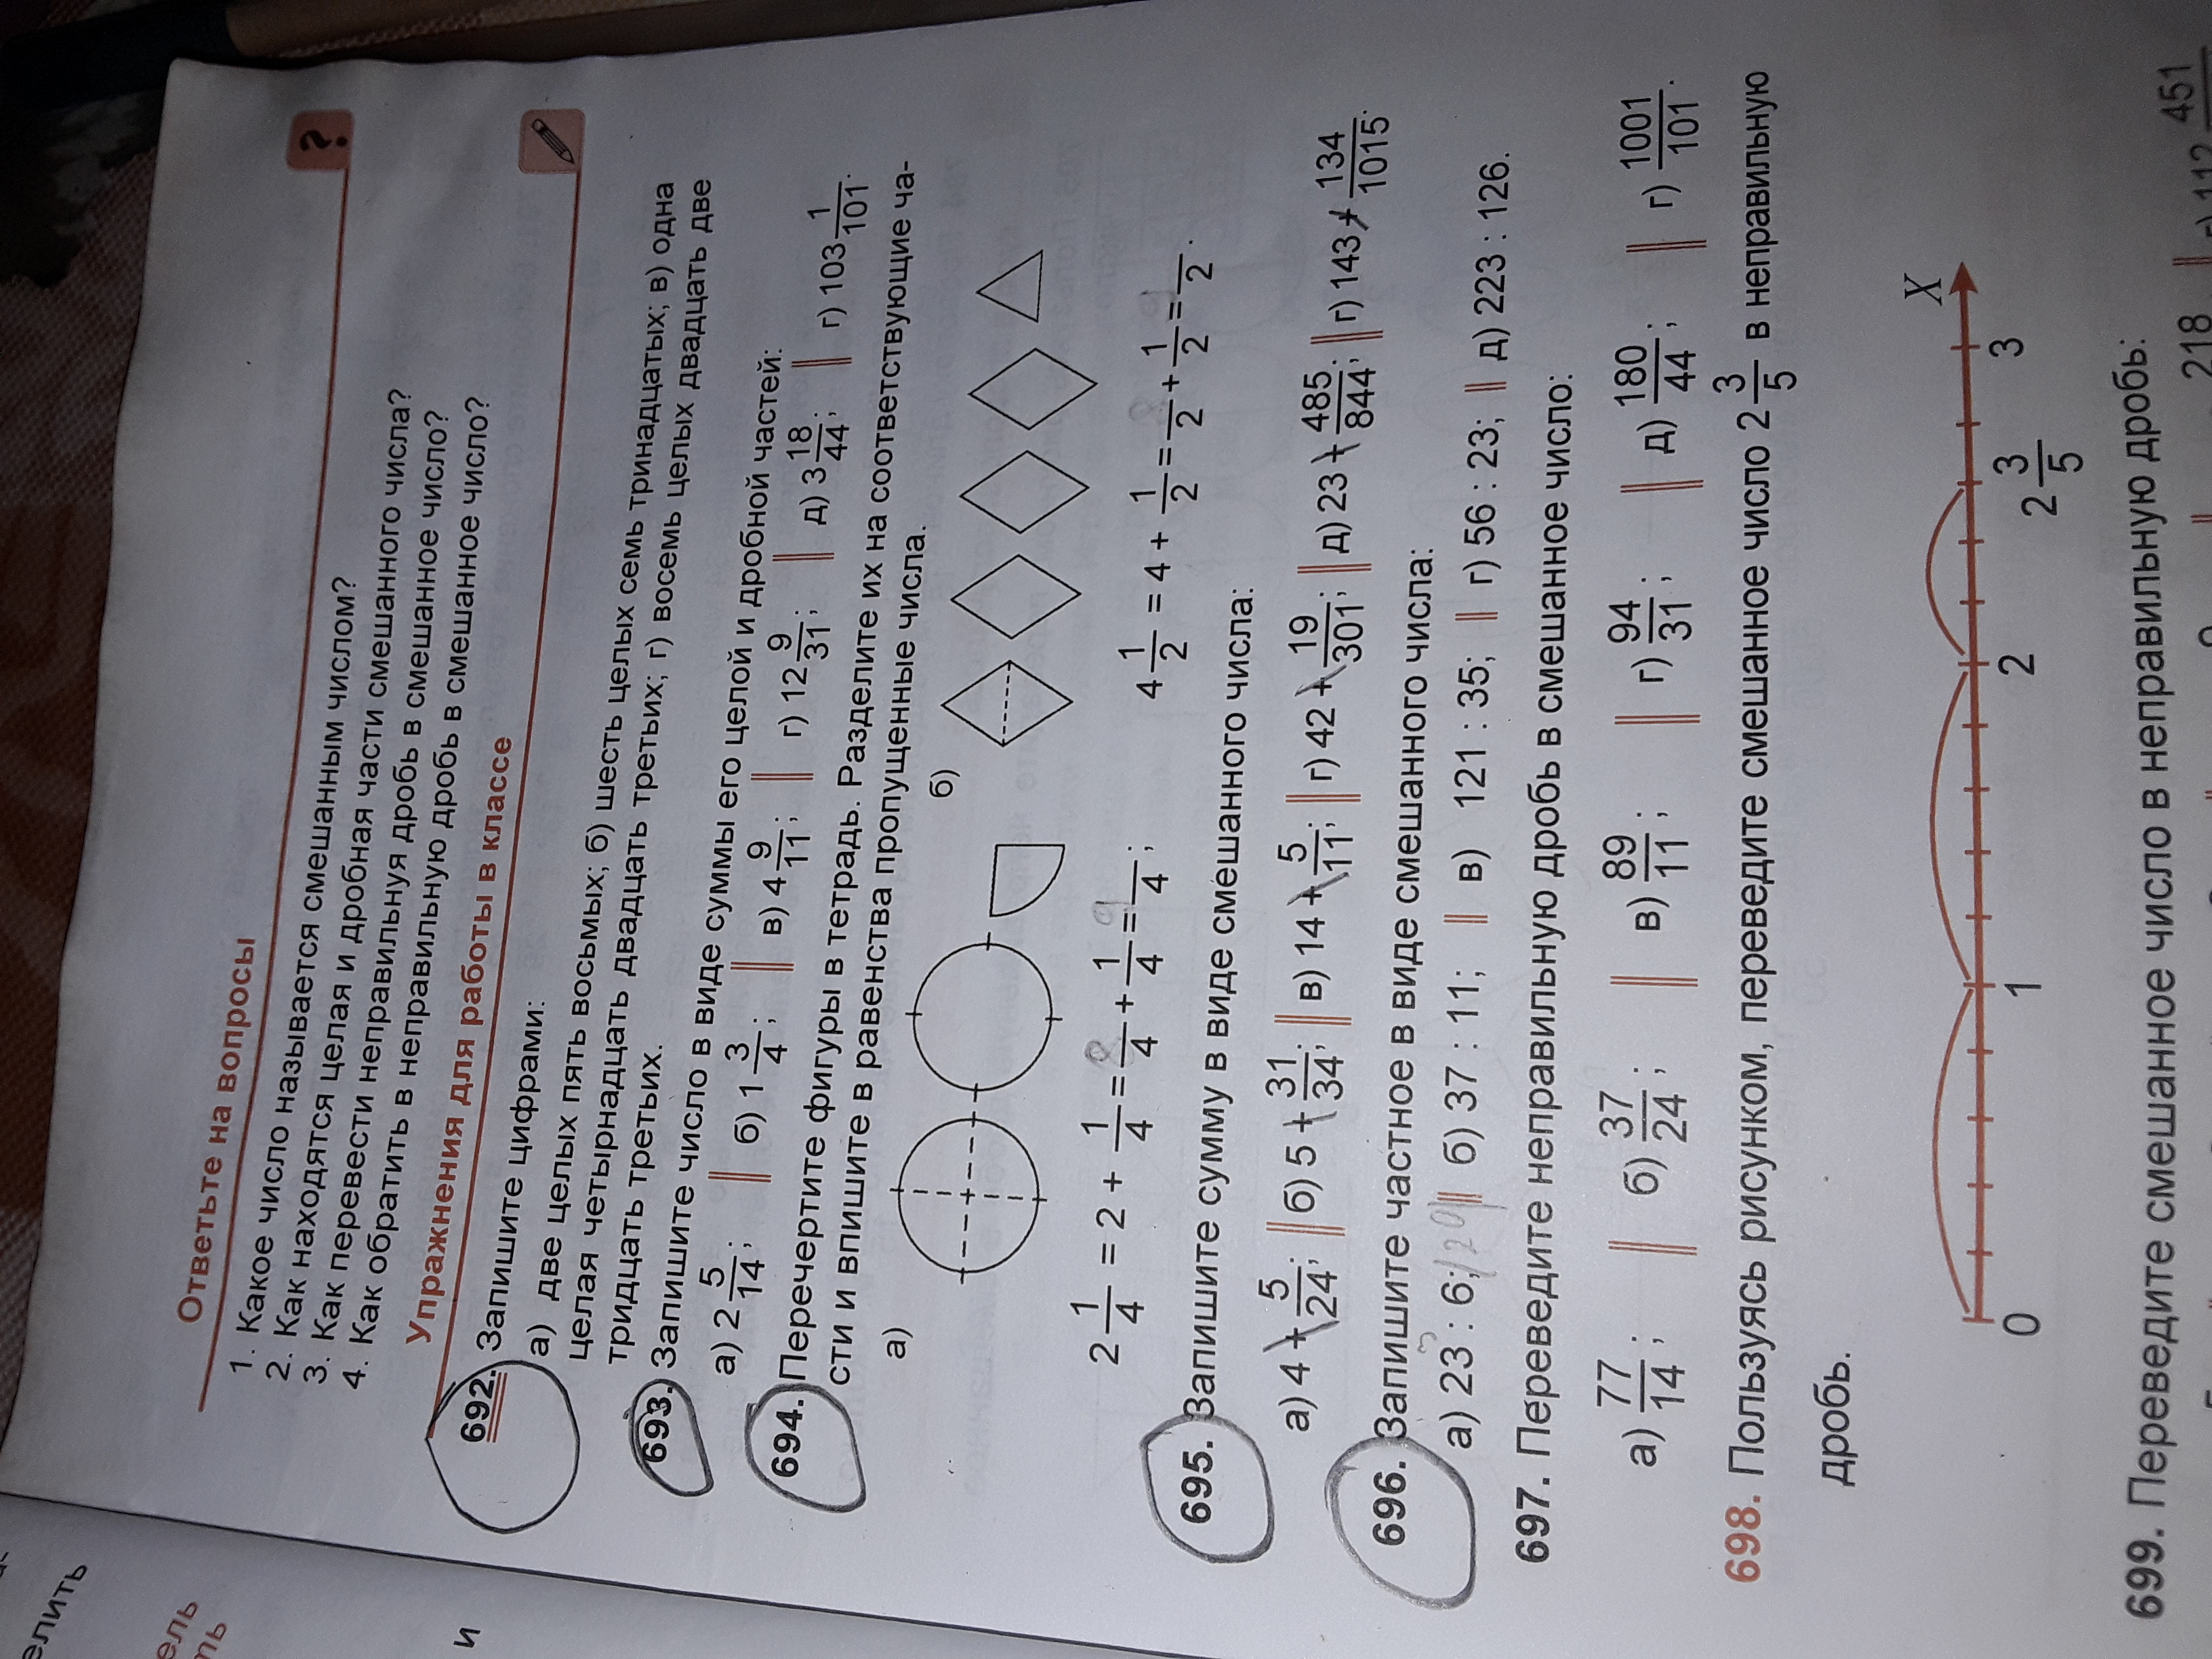 елить
ель
ть
и
Ответьте на вопросы
?
1. Какое число называется смешанным числом?
2. Как находятся целая и дробная части смешанного числа?
3. Как перевести неправильную дробь в смешанное число?
4. Как обратить в неправильную дробь в смешанное число?
Упражнения для работы в классе
692. Запишите цифрами:
а) две целых пять восьмых; б) шесть целых семь тринадцатых; в) одна
целая четырнадцать двадцать третьих; г) восемь целых двадцать две
тридцать третьих.
693. Запишите число в виде суммы его целой и дробной частей:
а) 2 5/14; || б) 1 3/4; || в) 4 9/11; || г) 12 9/31; || д) 3 18/44; || г) 103 1/101.
694. Перечертите фигуры в тетрадь. Разделите их на соответствующие ча-
сти и впишите в равенства пропущенные числа.
а) б)
2 1/4 = 2 + 1/4 = 8/4 + 1/4 = 9/4; 4 1/2 = 4 + 1/2 = /2 + 1/2 = /2.
695. Запишите сумму в виде смешанного числа:
а) 4 + 5/24; || б) 5 + 31/34; || в) 14 + 5/11; || г) 42 + 19/301; || д) 23 + 485/844; || г) 143 + 134/1015.
696. Запишите частное в виде смешанного числа:
а) 23 : 6; || б) 37 : 11; || в) 121 : 35; || г) 56 : 23; || д) 223 : 126.
697. Переведите неправильную дробь в смешанное число:
а) 77/14; || б) 37/24; || в) 89/11; || г) 94/31; || д) 180/44; || г) 1001/101.
698. Пользуясь рисунком, переведите смешанное число 2 3/5 в неправильную
дробь.
X
0 1 2 2 3/5 3
699. Переведите смешанное число в неправильную дробь:
218 || 112 451